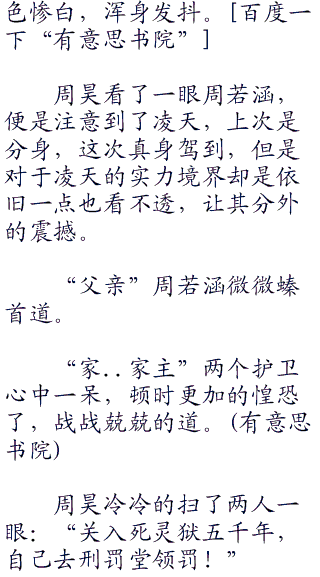 色惨白，浑身发抖。[百度一
下“有意思书院”]
周昊看了一眼周若涵，
便是注意到了凌天，上次是
分身，这次真身驾到，但是
对于凌天的实力境界却是依
旧一点也看不透，让其分外
的震撼。
“父亲”周若涵微微螓
首道。
“家..家主”两个护卫
心中一呆，顿时更加的惶恐
了，战战兢兢的道。(有意思
书院)
周昊冷冷的扫了两人一
眼：“关入死灵狱五千年，
自己去刑罚堂领罚！”